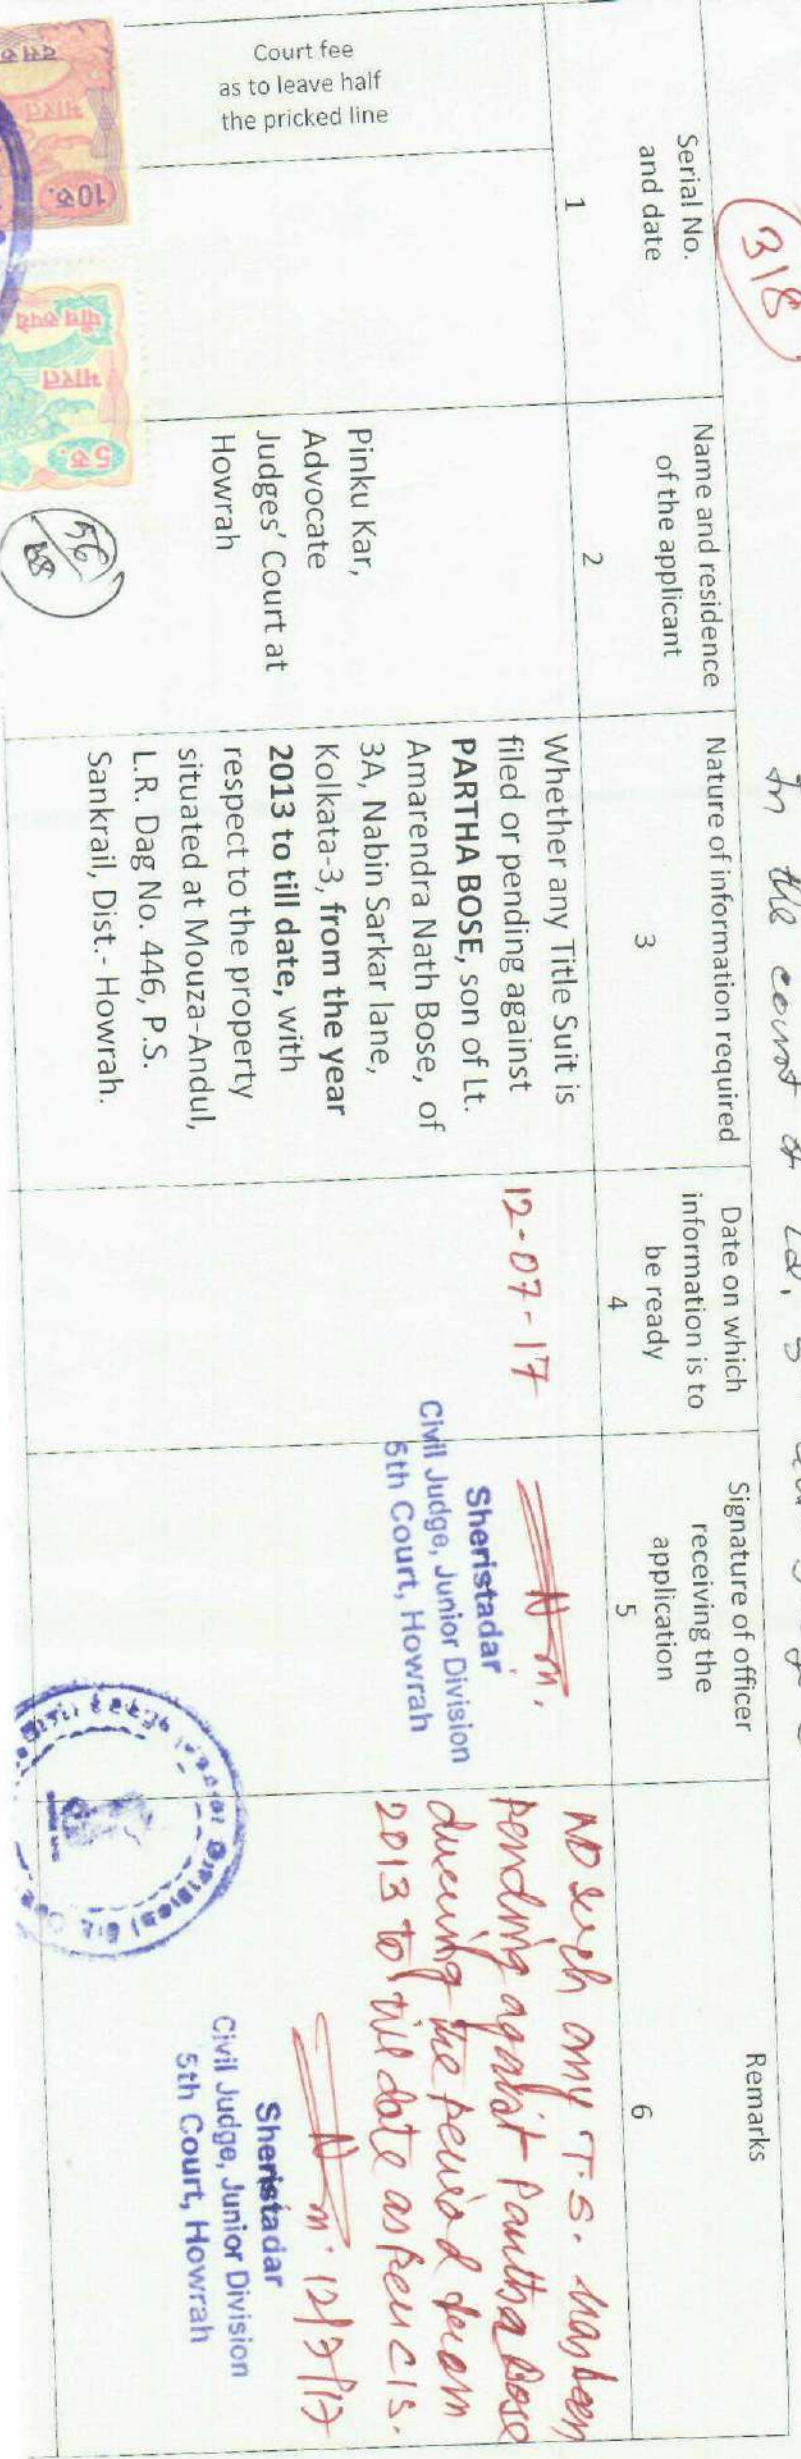 318
In the court of Ld. 5
Serial No.
and date
Name and residence
of the applicant
Nature of information required
Date on which
information is to
be ready
Signature of officer
receiving the
application
Remarks
1
2
3
4
5
6
Court fee
as to leave half
the pricked line
Pinku Kar,
Advocate
Judges' Court at
Howrah
Whether any Title Suit is
filed or pending against
PARTHA BOSE, son of Lt.
Amarendra Nath Bose, of
3A, Nabin Sarkar lane,
Kolkata-3, from the year
2013 to till date, with
respect to the property
situated at Mouza-Andul,
L.R. Dag No. 446, P.S.
Sankrail, Dist.- Howrah.
12-07-17
Sheristadar
Civil Judge, Junior Division
5th Court, Howrah
NO such any T.S. has been
pending against Partha Bose
during the period from
2013 to till date as per CIS.
12/7/17
Sheristadar
Civil Judge, Junior Division
5th Court, Howrah
भारत
10रु.
पाँच रुपये
भारत
5रु.
56